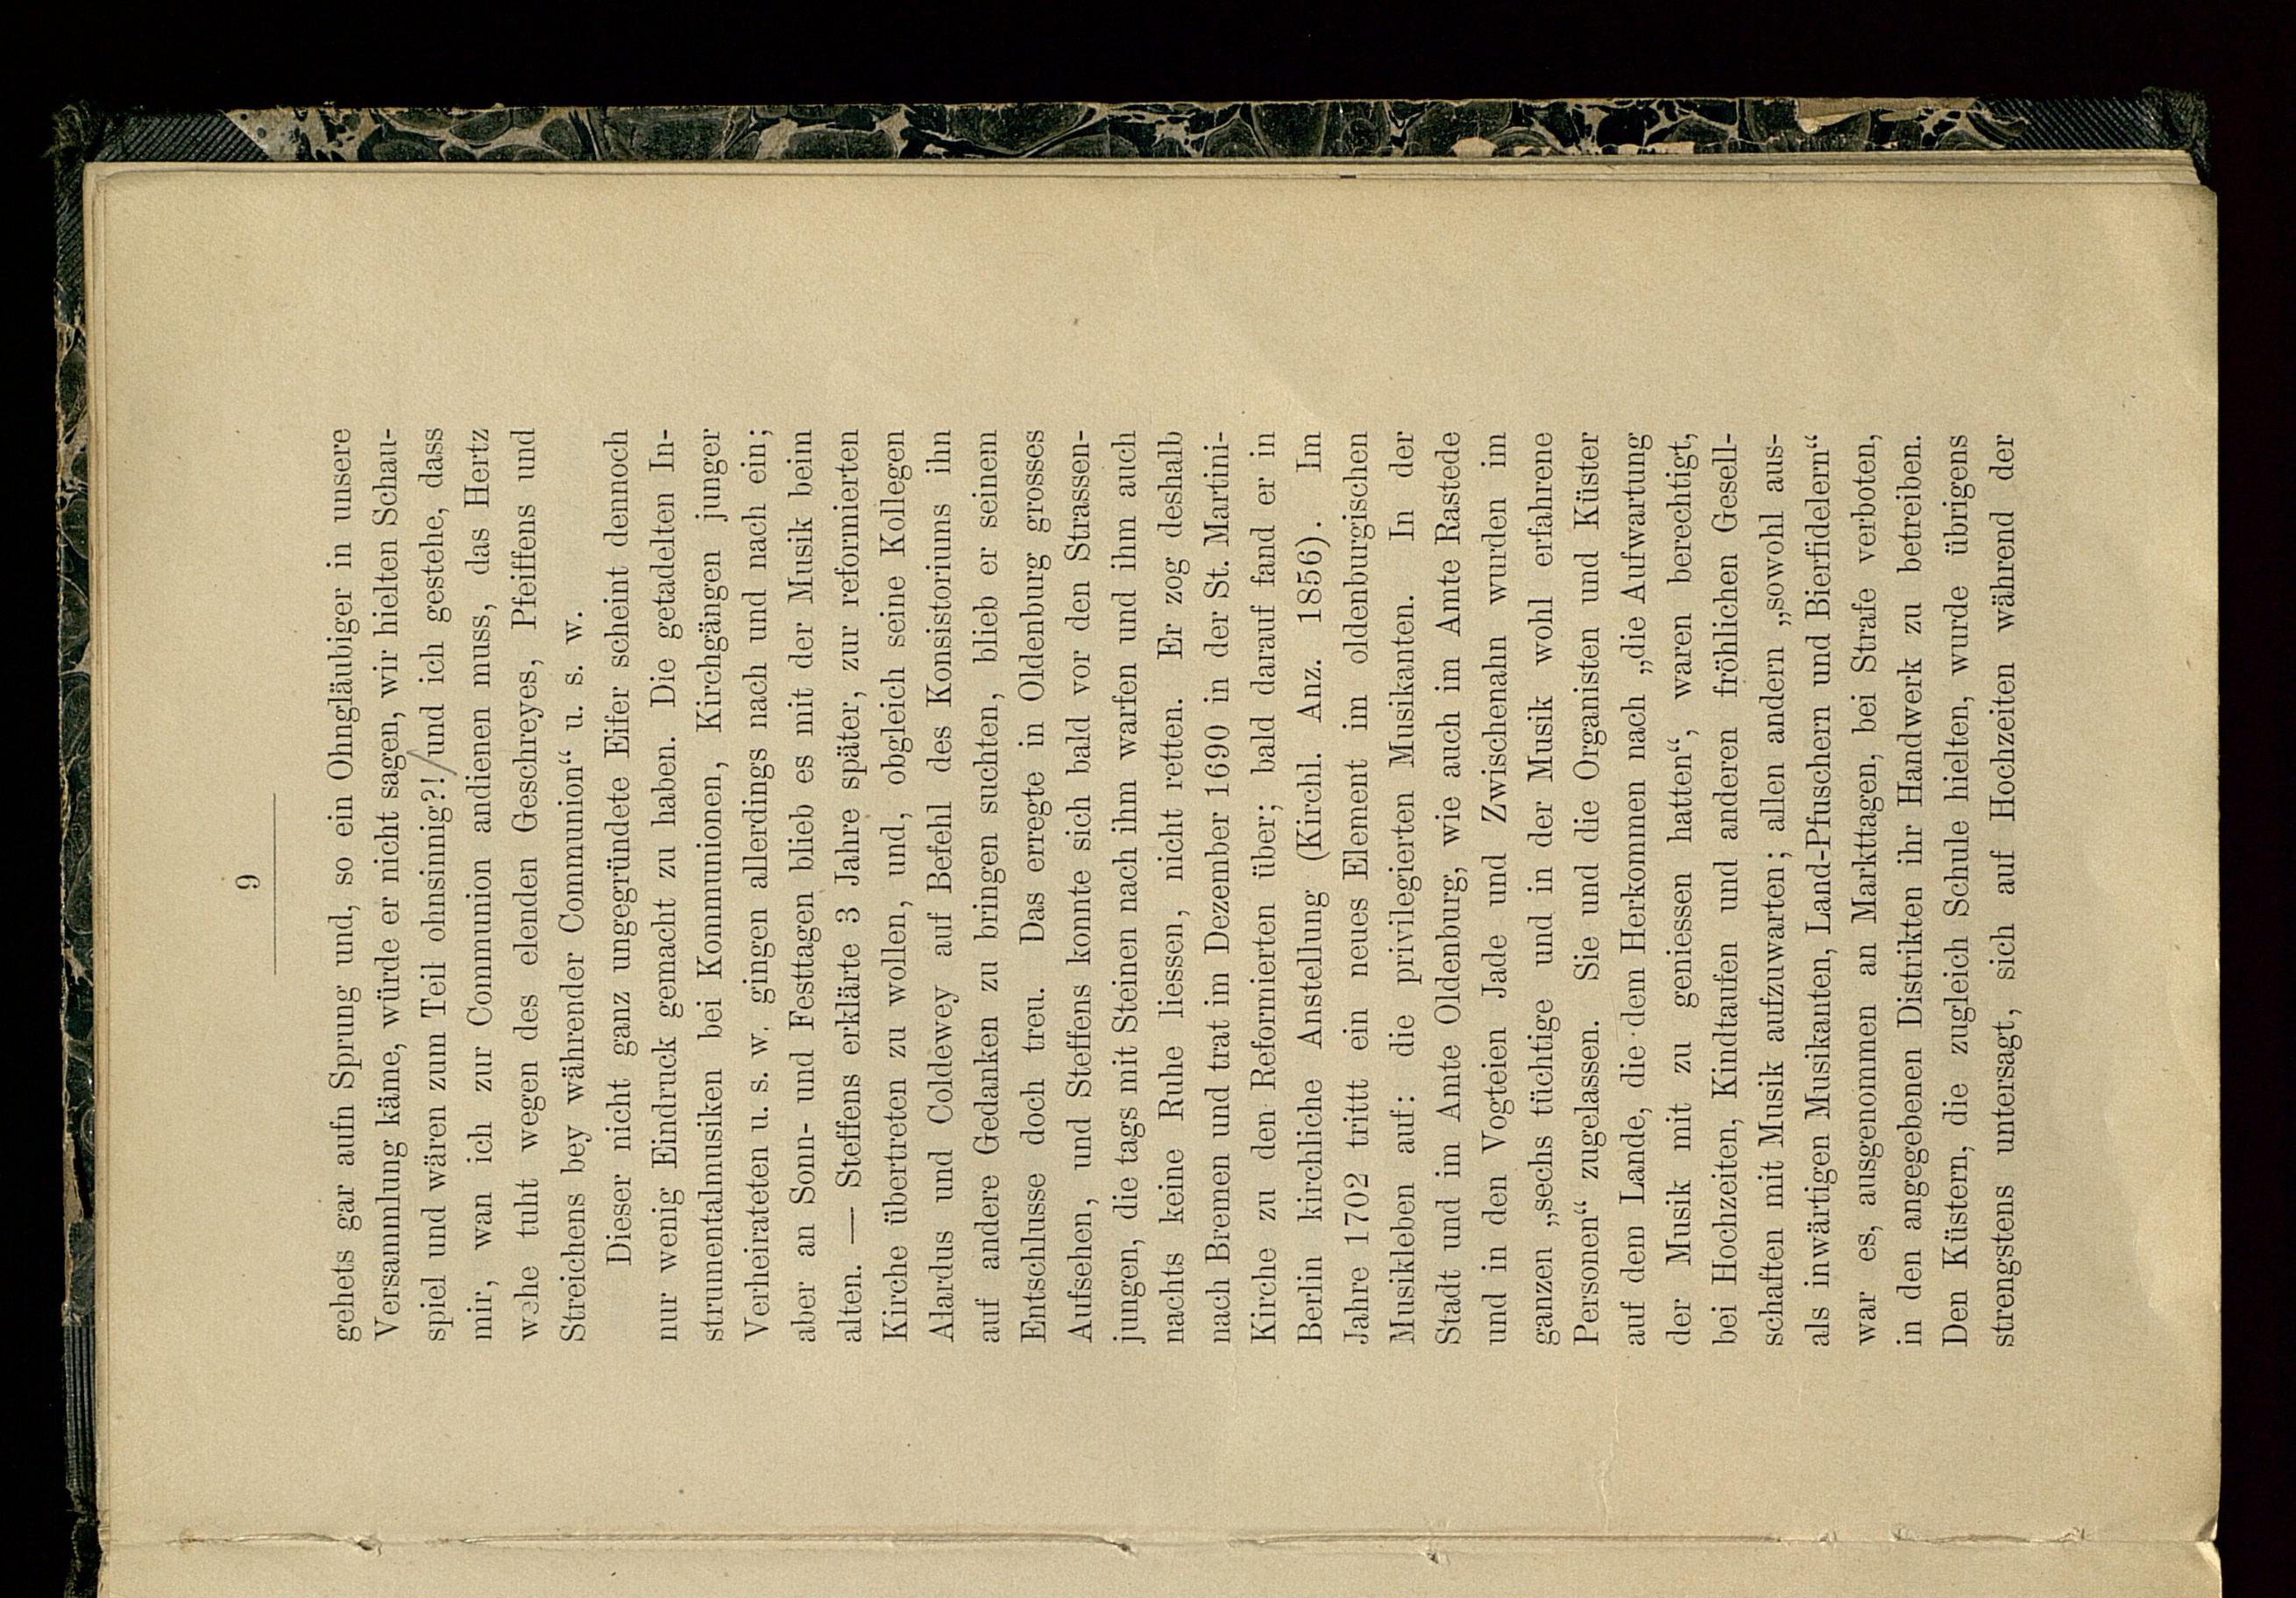 9
gehets gar aufn Sprung und, so ein Ohngläubiger in unsere
Versammlung käme, würde er nicht sagen, wir hielten Schau-
spiel und wären zum Teil ohnsinnig?!/und ich gestehe, dass
mir, wan ich zur Communion andienen muss, das Hertz
wehe tuht wegen des elenden Geschreyes, Pfeiffens und
Streichens bey währender Communion“ u. s. w.
Dieser nicht ganz ungegründete Eifer scheint dennoch
nur wenig Eindruck gemacht zu haben. Die getadelten In-
strumentalmusiken bei Kommunionen, Kirchgängen junger
Verheirateten u. s. w. gingen allerdings nach und nach ein;
aber an Sonn- und Festtagen blieb es mit der Musik beim
alten. — Steffens erklärte 3 Jahre später, zur reformierten
Kirche übertreten zu wollen, und, obgleich seine Kollegen
Alardus und Coldewey auf Befehl des Konsistoriums ihn
auf andere Gedanken zu bringen suchten, blieb er seinem
Entschlusse doch treu. Das erregte in Oldenburg grosses
Aufsehen, und Steffens konnte sich bald vor den Strassen-
jungen, die tags mit Steinen nach ihm warfen und ihm auch
nachts keine Ruhe liessen, nicht retten. Er zog deshalb
nach Bremen und trat im Dezember 1690 in der St. Martini-
Kirche zu den Reformierten über; bald darauf fand er in
Berlin kirchliche Anstellung (Kirchl. Anz. 1856). Im
Jahre 1702 trittt ein neues Element im oldenburgischen
Musikleben auf: die privilegierten Musikanten. In der
Stadt und im Amte Oldenburg, wie auch im Amte Rastede
und in den Vogteien Jade und Zwischenahn wurden im
ganzen „sechs tüchtige und in der Musik wohl erfahrene
Personen“ zugelassen. Sie und die Organisten und Küster
auf dem Lande, die dem Herkommen nach „die Aufwartung
der Musik mit zu geniessen hatten“, waren berechtigt,
bei Hochzeiten, Kindtaufen und anderen fröhlichen Gesell-
schaften mit Musik aufzuwarten; allen andern „sowohl aus-
als inwärtigen Musikanten, Land-Pfuschern und Bierfidelern“
war es, ausgenommen an Markttagen, bei Strafe verboten,
in den angegebenen Distrikten ihr Handwerk zu betreiben.
Den Küstern, die zugleich Schule hielten, wurde übrigens
strengstens untersagt, sich auf Hochzeiten während der